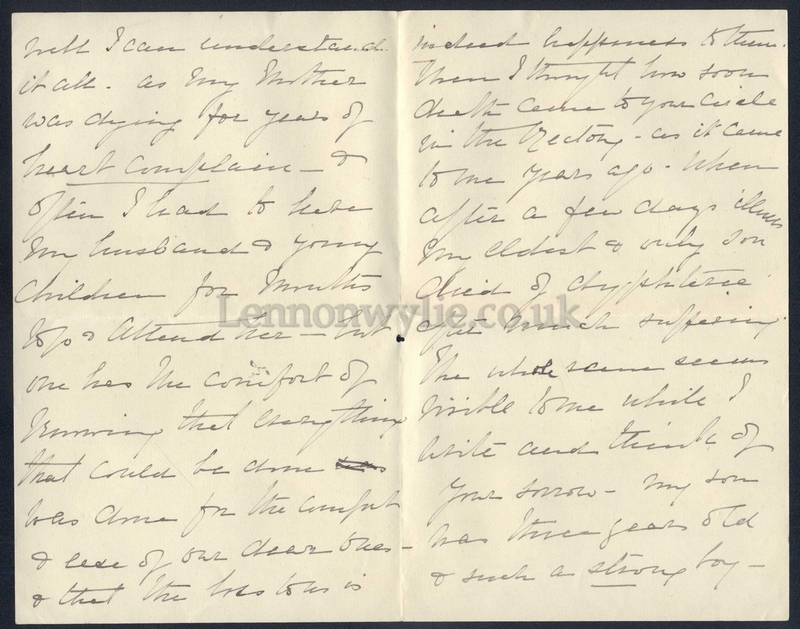 well I can understand
it all - as my Mother
was dying for years of
heart complain - &
often I had to leave
my husband & young
children for Months
to go & attend her - but
one has the comfort of
knowing that everything
that could be done was
was done for the comfort
& ease of our dear ones -
& that the loss to us is
indeed happiness to them.
Then I thought how soon
death came to your circle
in the Rectory - as it came
to me years ago - when
after a few days illness
my eldest & only son
died of dyphtterie
after much suffering.
The whole scene seems
visible to me while I
write and think of
your sorrow - my son
was three years old
& such a strong boy -
Lennonwylie.co.uk